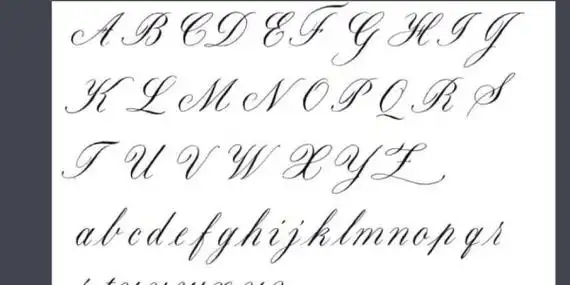 A B C D E F G H I J
K L M N O P Q R S
T U V W X Y Z
a b c d e f g h i j k l m n o p q r